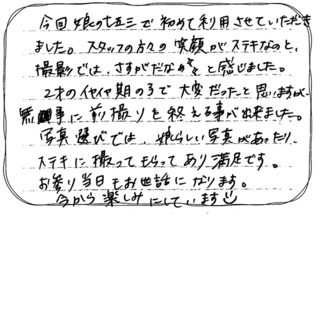 今回娘の七五三で初めて利用させていただき
ました。スタッフの方々の笑顔がステキなのと、
撮影では、さすがだなぁと感じました。
2才のイヤイヤ期の子で大変だったと思いますが、
無事に前撮りを終える事が出来ました。
写真選びでは、娘らしい写真があったり、
ステキに撮ってもらってあり満足です。
お参り当日もお世話になります。
今から楽しみにしています